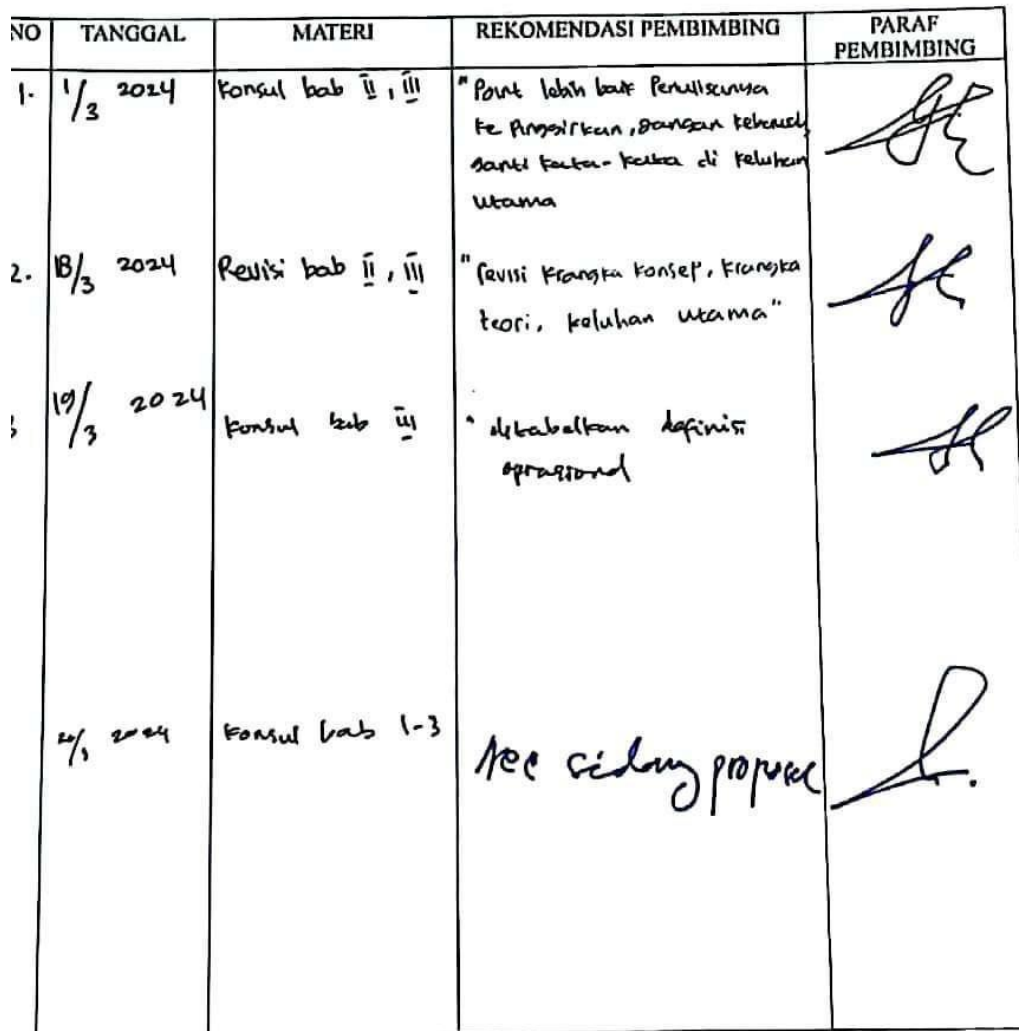 NO TANGGAL MATERI REKOMENDASI PEMBIMBING PARAF PEMBIMBING
1. 1/3 2024 Konsul bab II, III "Point lebih baik Penulisannya
ke Pinggirkan, Jangan
ganti kata-kata di keluhan
utama
2. 18/3 2024 Revisi bab II, III "revisi krangka konsep, krangka
teori, keluhan utama"
19/3 2024 konsul bab III " ditabelkan definisi
oprasional
2024 konsul bab 1-3 Acc sidang proposal